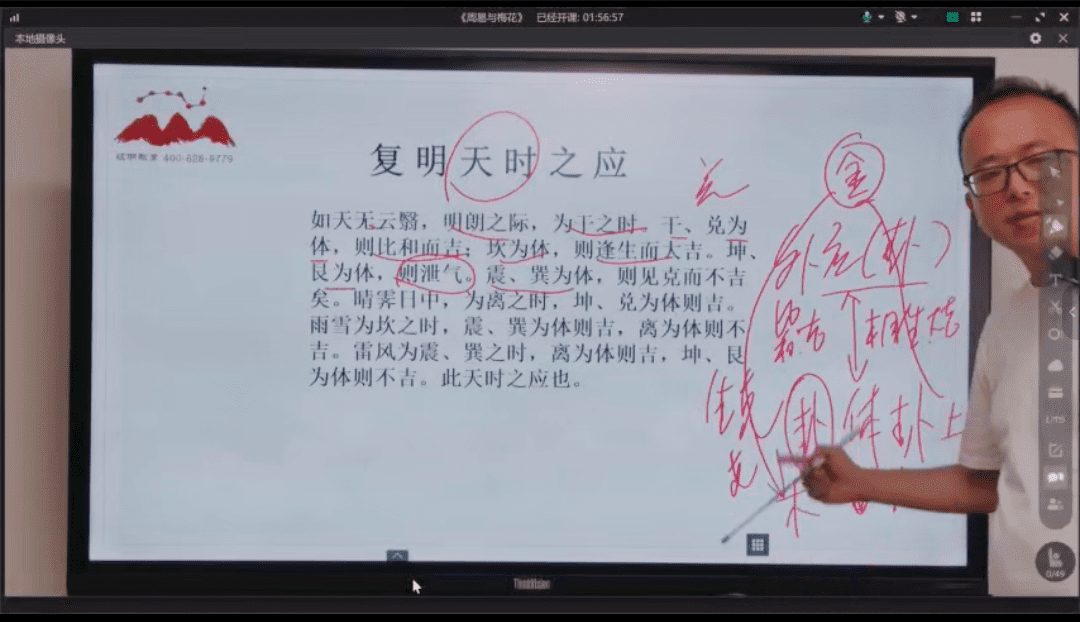 《周易与梅花》 已经开课: 01:56:57
本地摄像头
400-628-9779
复明天时之应
如天无云翳，明朗之际，为干之时。干、兑为
体，则比和而吉；坎为体，则逢生而大吉。坤、
艮为体，则泄气。震、巽为体，则见克而不吉
矣。晴霁日中，为离之时，坤、兑为体则吉。
雨雪为坎之时，震、巽为体则吉，离为体则不
吉。雷风为震、巽之时，离为体则吉，坤、艮
为体则不吉。此天时之应也。
金
外应(卦)
相生
卦 体卦上
木
ThinkVision
0/49